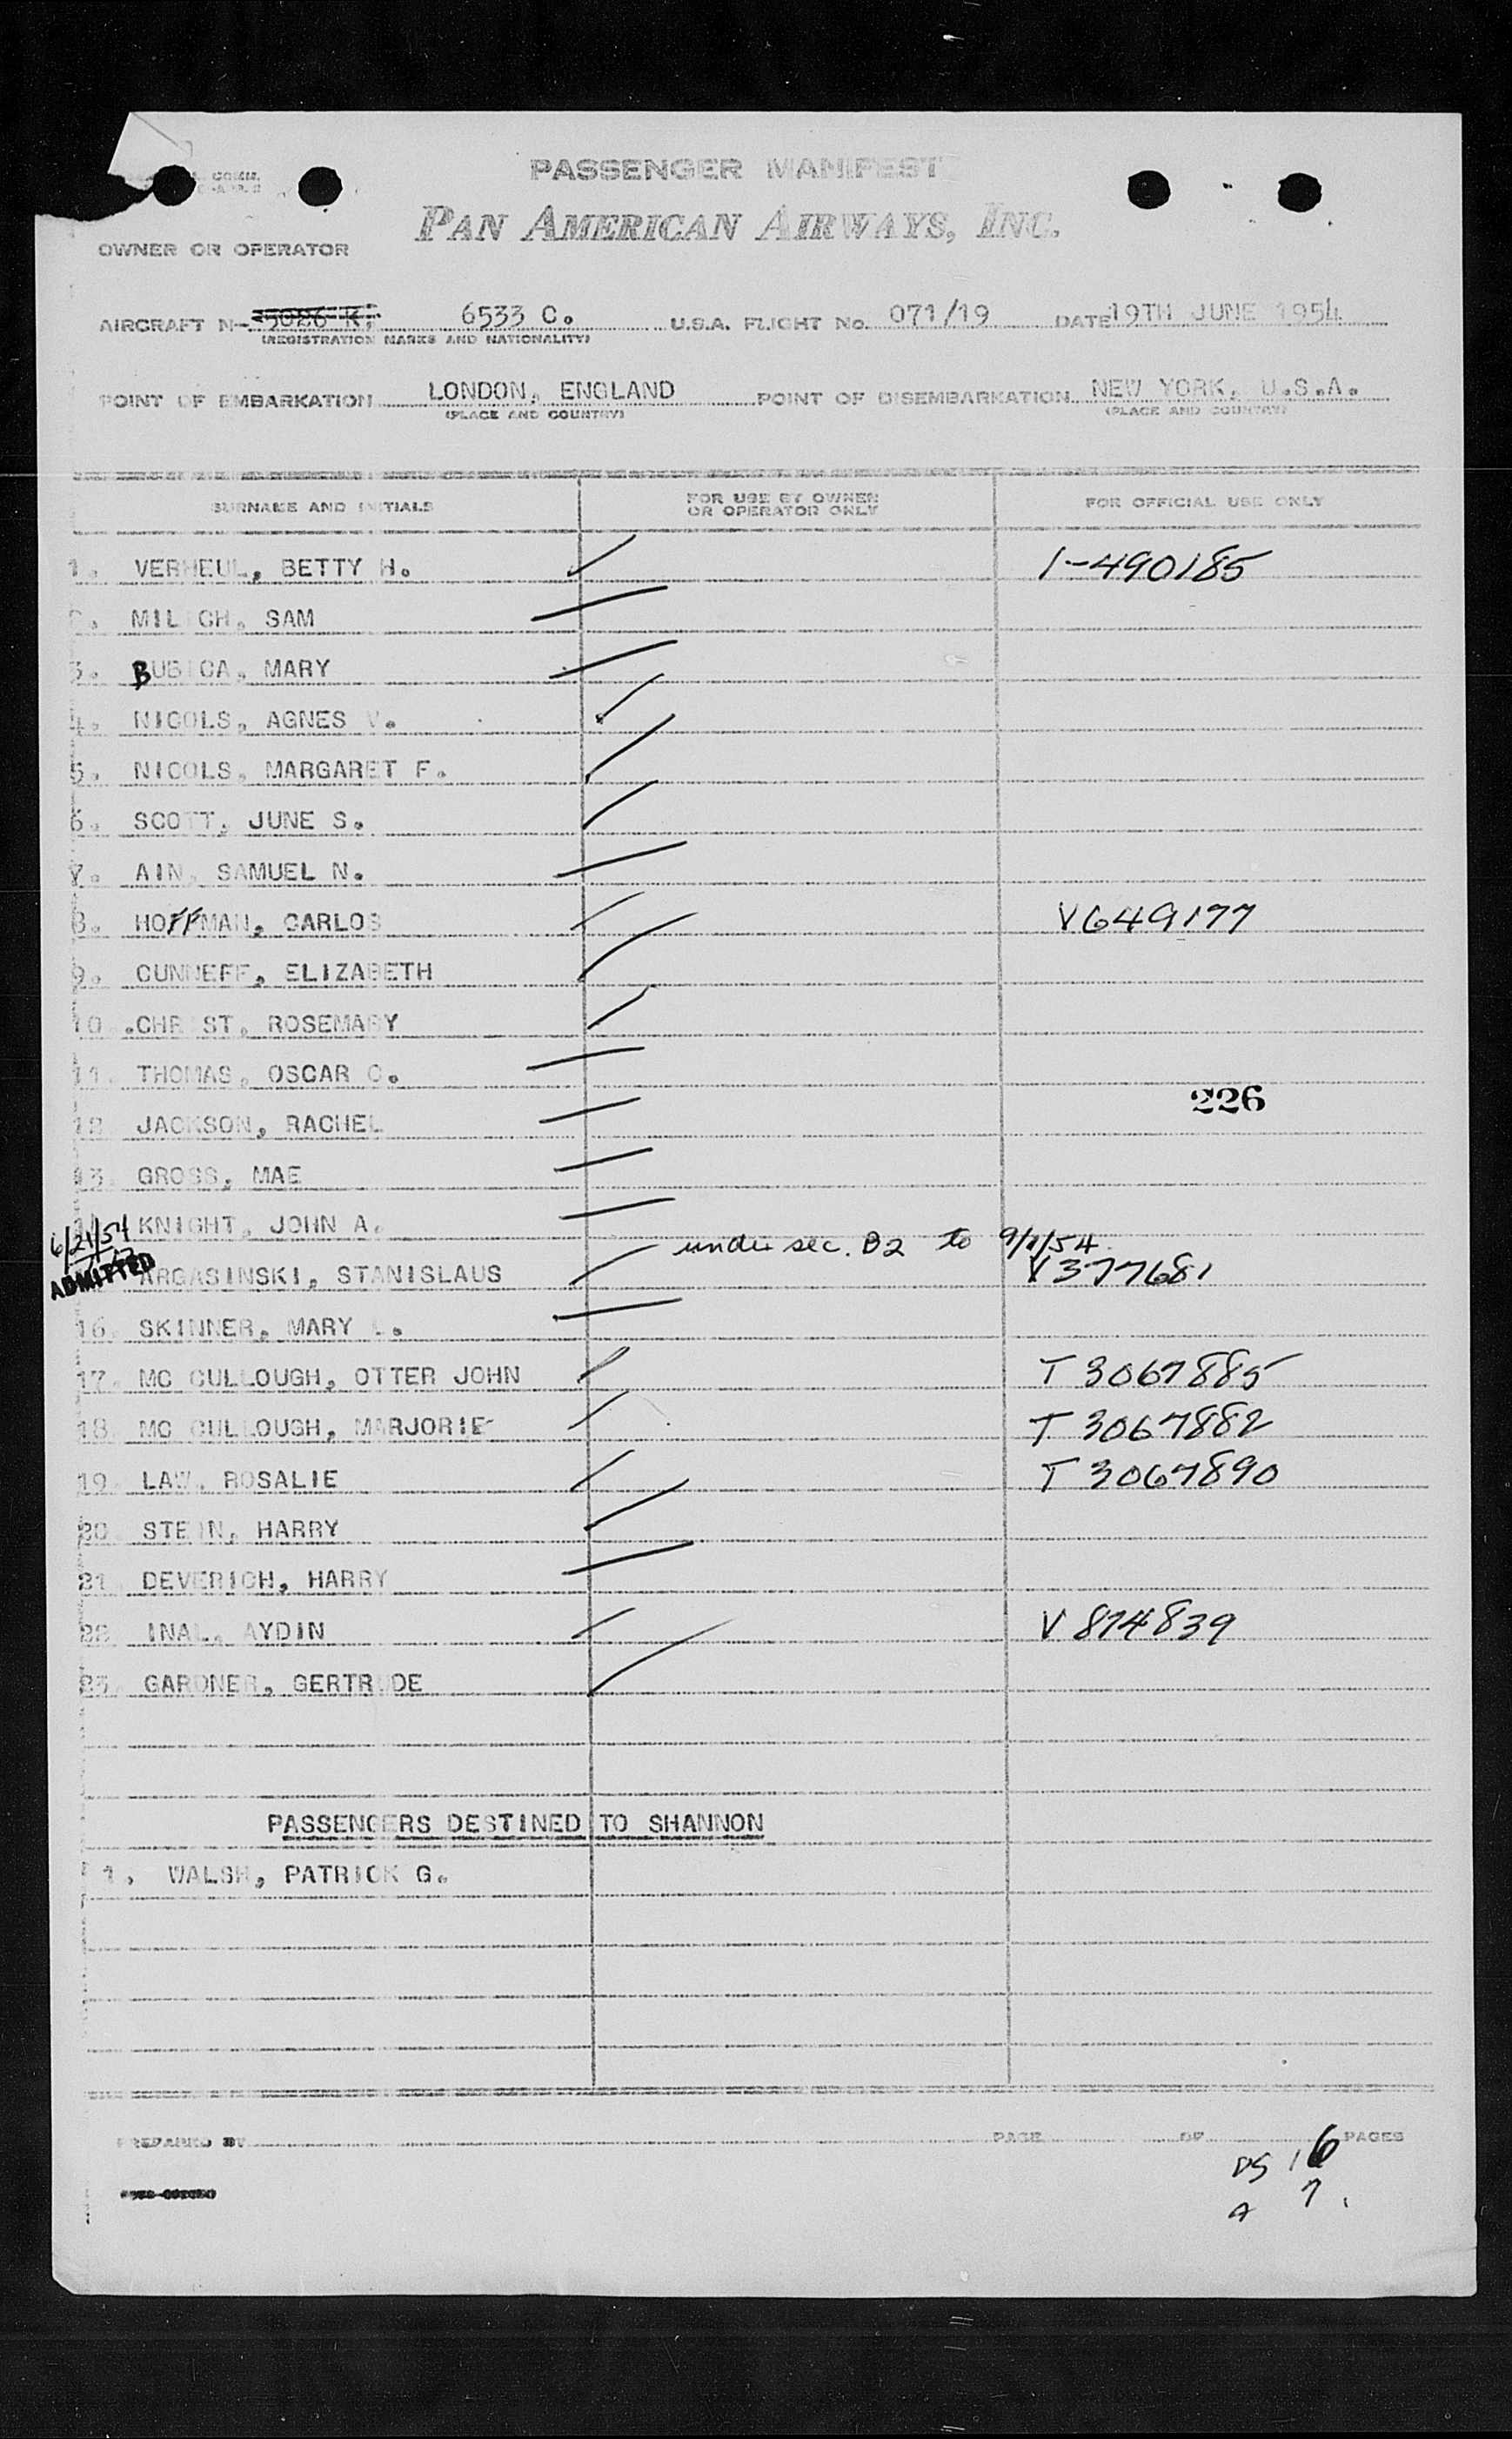 COMM.
PASSENGER MANIFEST
PAN AMERICAN AIRWAYS, INC.
OWNER OR OPERATOR
AIRCRAFT N- 5026 K. 6533 C. U.S.A. FLIGHT No. 071/19 DATE 19TH JUNE 1954
(REGISTRATION MARKS AND NATIONALITY)
POINT OF EMBARKATION LONDON, ENGLAND POINT OF DISEMBARKATION NEW YORK, U.S.A.
(PLACE AND COUNTRY) (PLACE AND COUNTRY)
SURNAME AND INITIALS FOR USE BY OWNER OR OPERATOR ONLY FOR OFFICIAL USE ONLY
1. VERHEUL, BETTY H. 1-490185
2. MILICH, SAM
3. BUBICA, MARY
4. NICOLS, AGNES V.
5. NICOLS, MARGARET F.
6. SCOTT, JUNE S.
7. AIN, SAMUEL N.
8. HOFFMAN, CARLOS V649177
9. CUNNEFF, ELIZABETH
10. CHRIST, ROSEMARY
11. THOMAS, OSCAR C.
226
12. JACKSON, RACHEL
13. GROSS, MAE
KNIGHT, JOHN A.
6/21/54 under sec. B2 to 9/1/54
ADMITTED ARGASINSKI, STANISLAUS V377681
16. SKINNER, MARY L.
17. MC CULLOUGH, OTTER JOHN T 3067885
18. MC CULLOUGH, MARJORIE T 3067882
19. LAW, ROSALIE T 3067890
20. STEIN, HARRY
21. DEVERICH, HARRY
22. INAL, AYDIN V 874839
23. GARDNER, GERTRUDE
PASSENGERS DESTINED TO SHANNON
1. WALSH, PATRICK G.
PREPARED BY PAGE OF PAGES
US 16
A 7